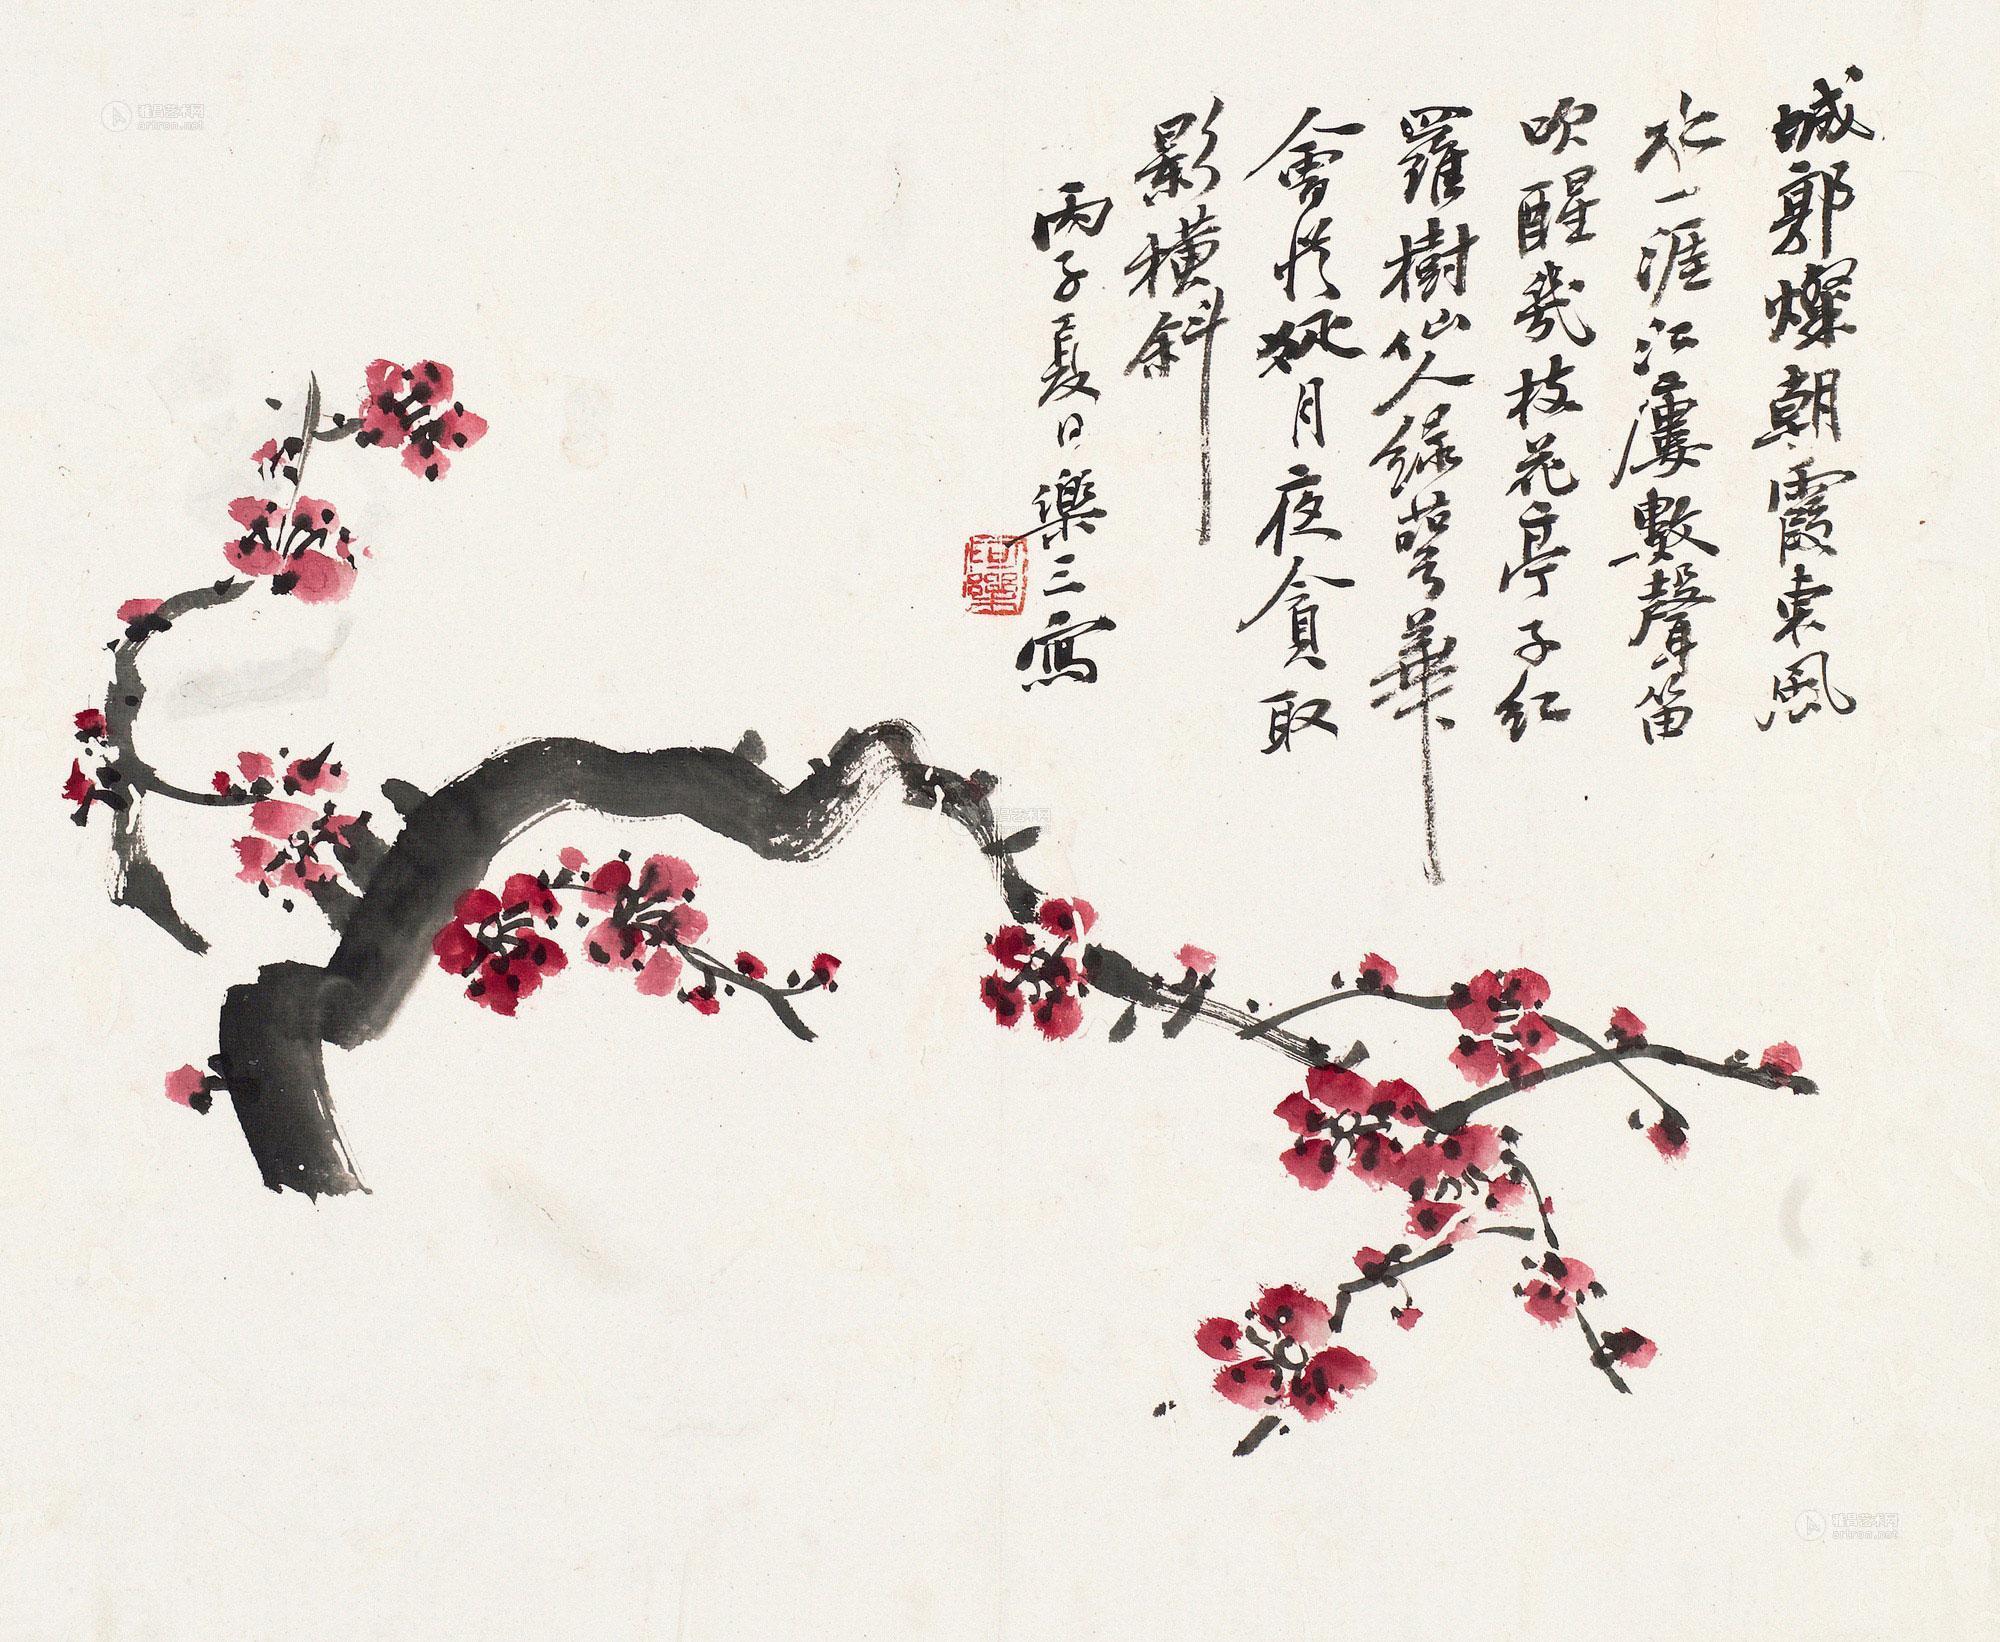 城郭燦朝霞東風
水一涯江廔數聲笛
吹醒幾枝花亭子紅
羅樹仙人綠萼華
會月夜貪取
影橫斜
丙子夏日樂三寫
雅昌艺术网
artron.net
雅昌艺术网
雅昌艺术网
artron.net